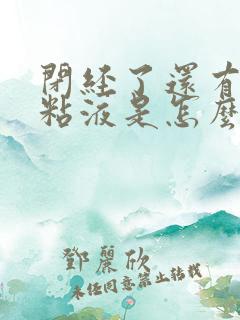 閉經了還有
粘液是怎麼
鄧麗欣
未任同意禁止轉載